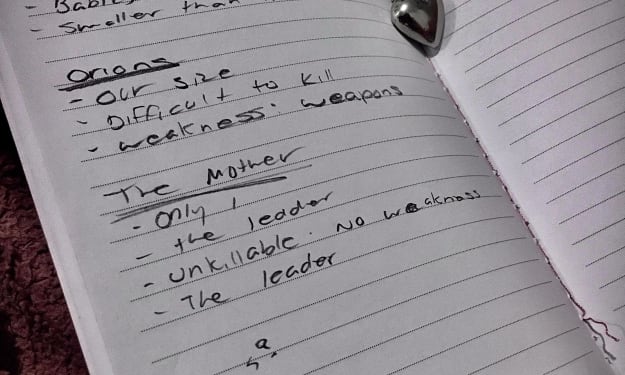 - Babies
- Smaller than
Orions
- Our size
- Difficult to kill
- weakness: weapons
The Mother
- Only 1
- the leader
- unkillable. No weakness
- The leader
a